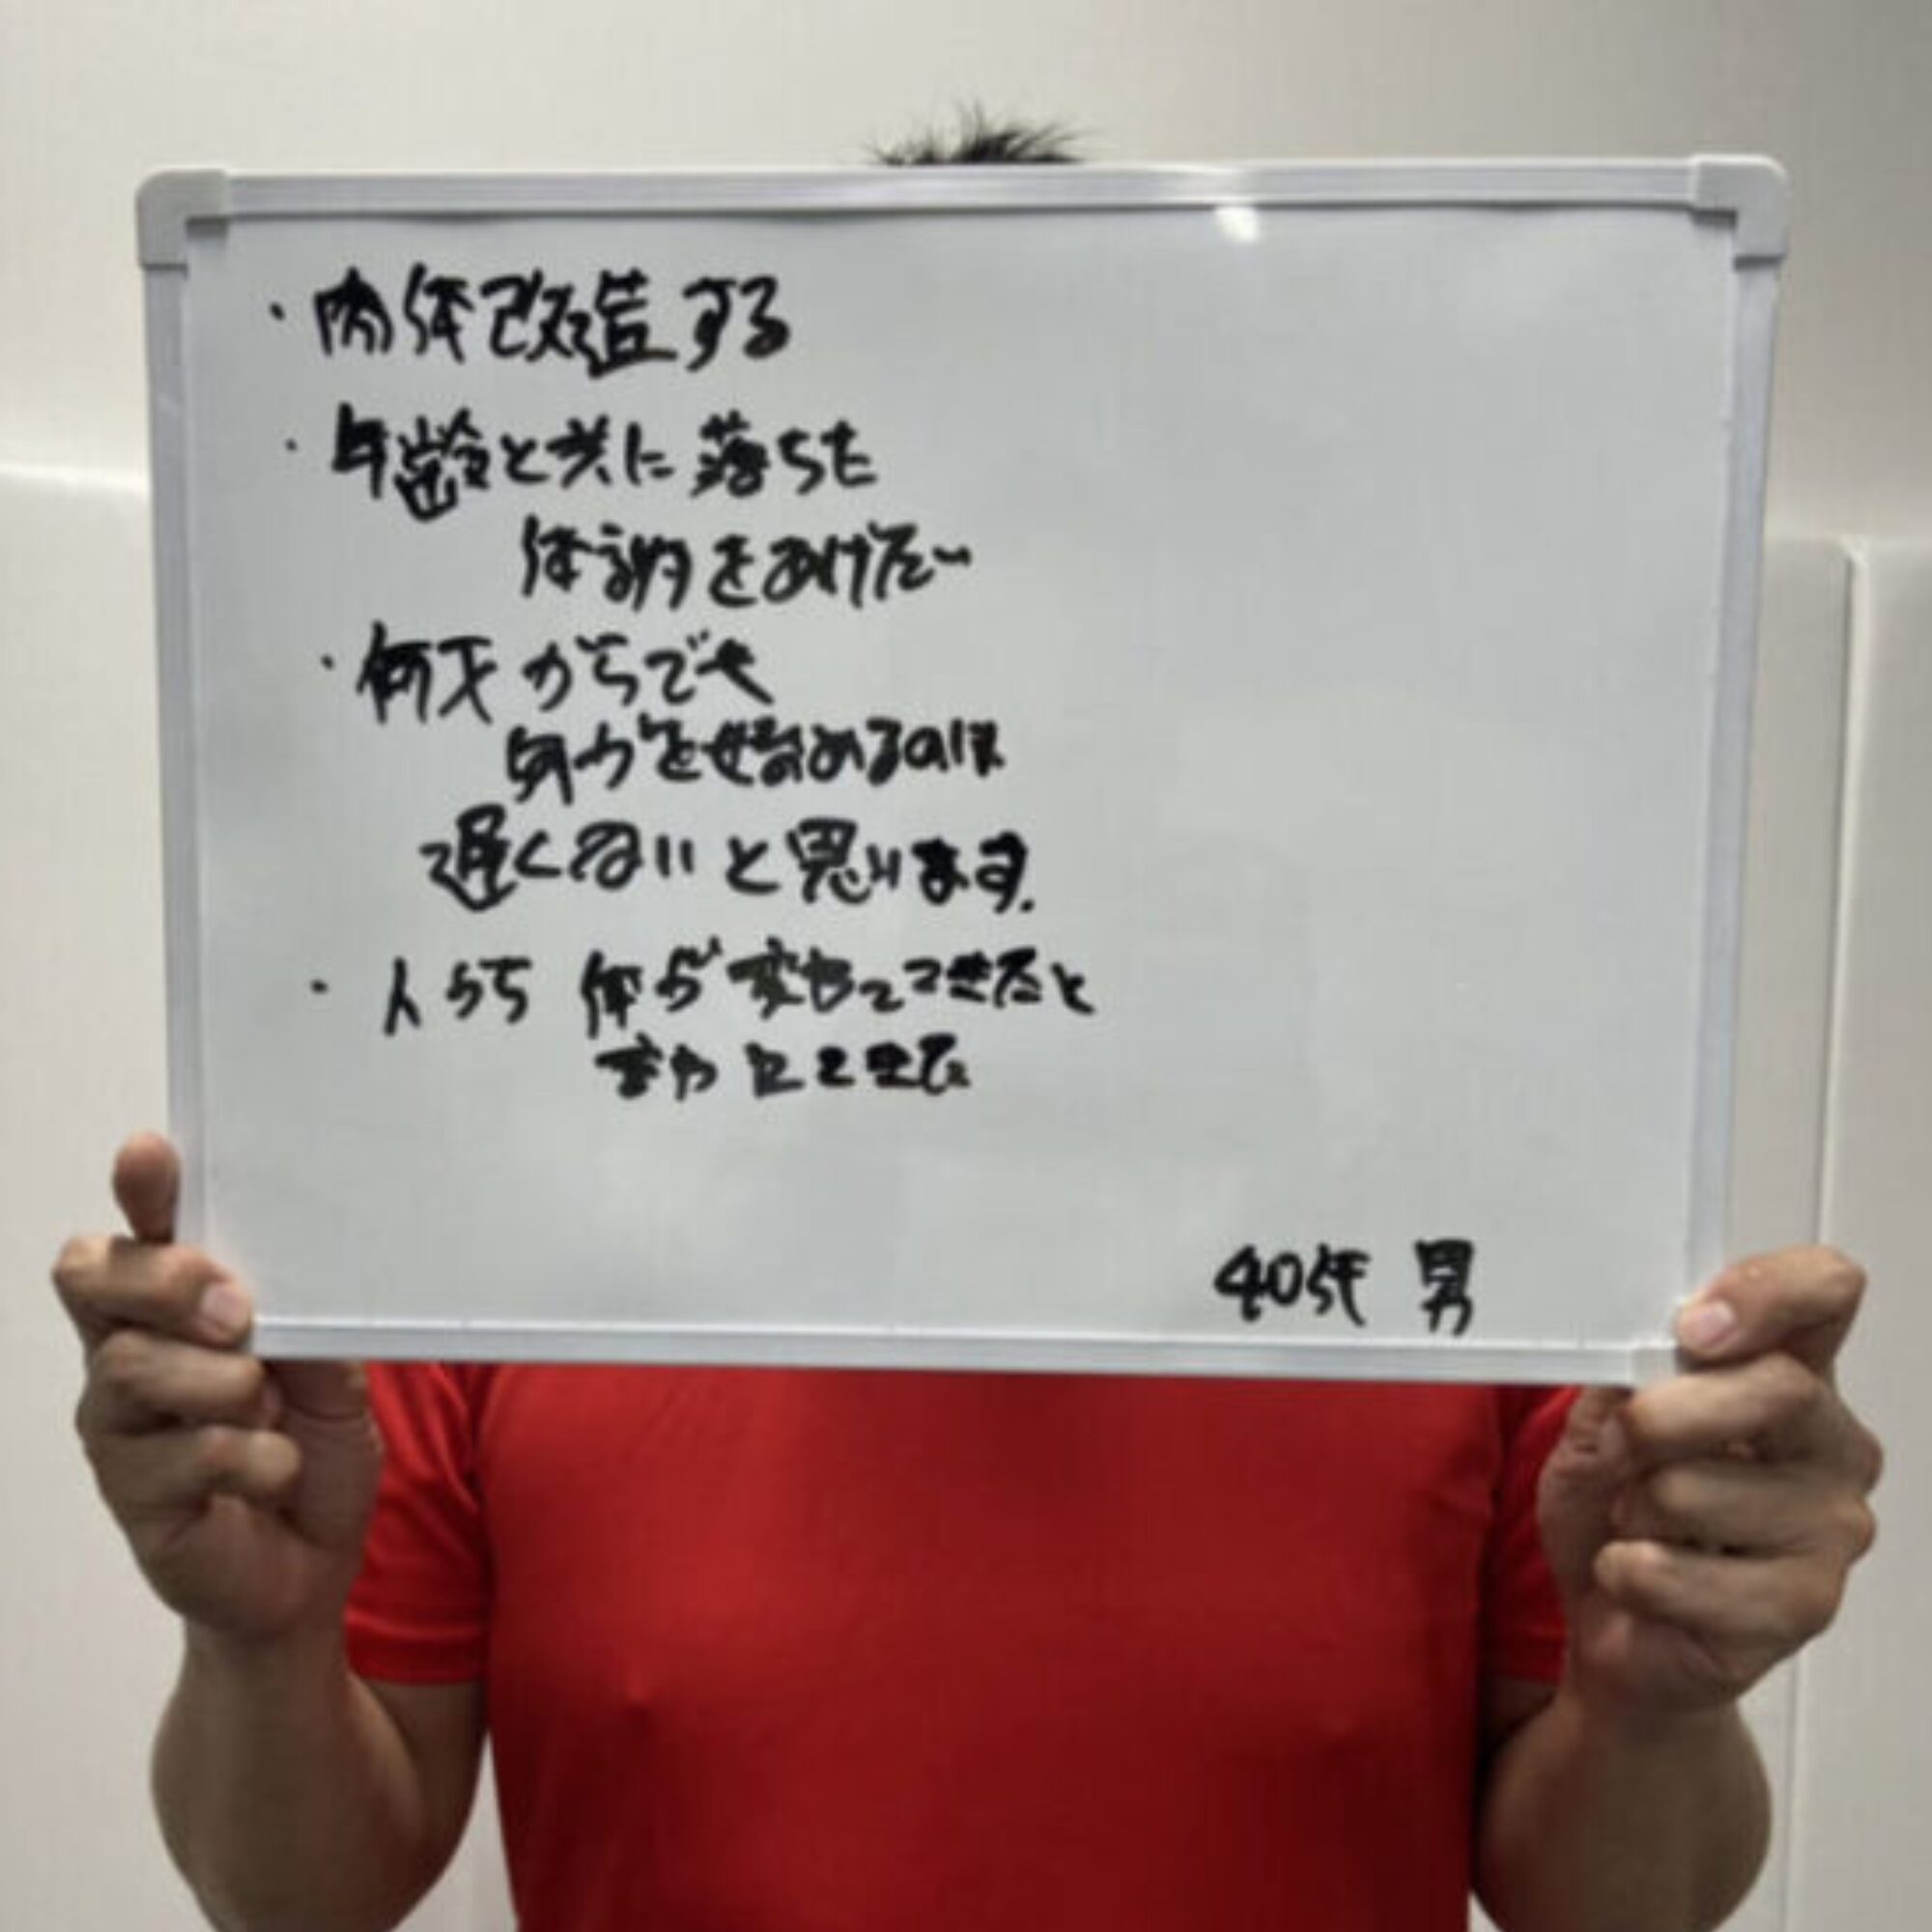 ・肉体改造する
・年齢と共に落ちた
をあげたい
・何才からでも
を始めるのは
遅くないと思います.
・人から 体が変わってきたと
40代 男